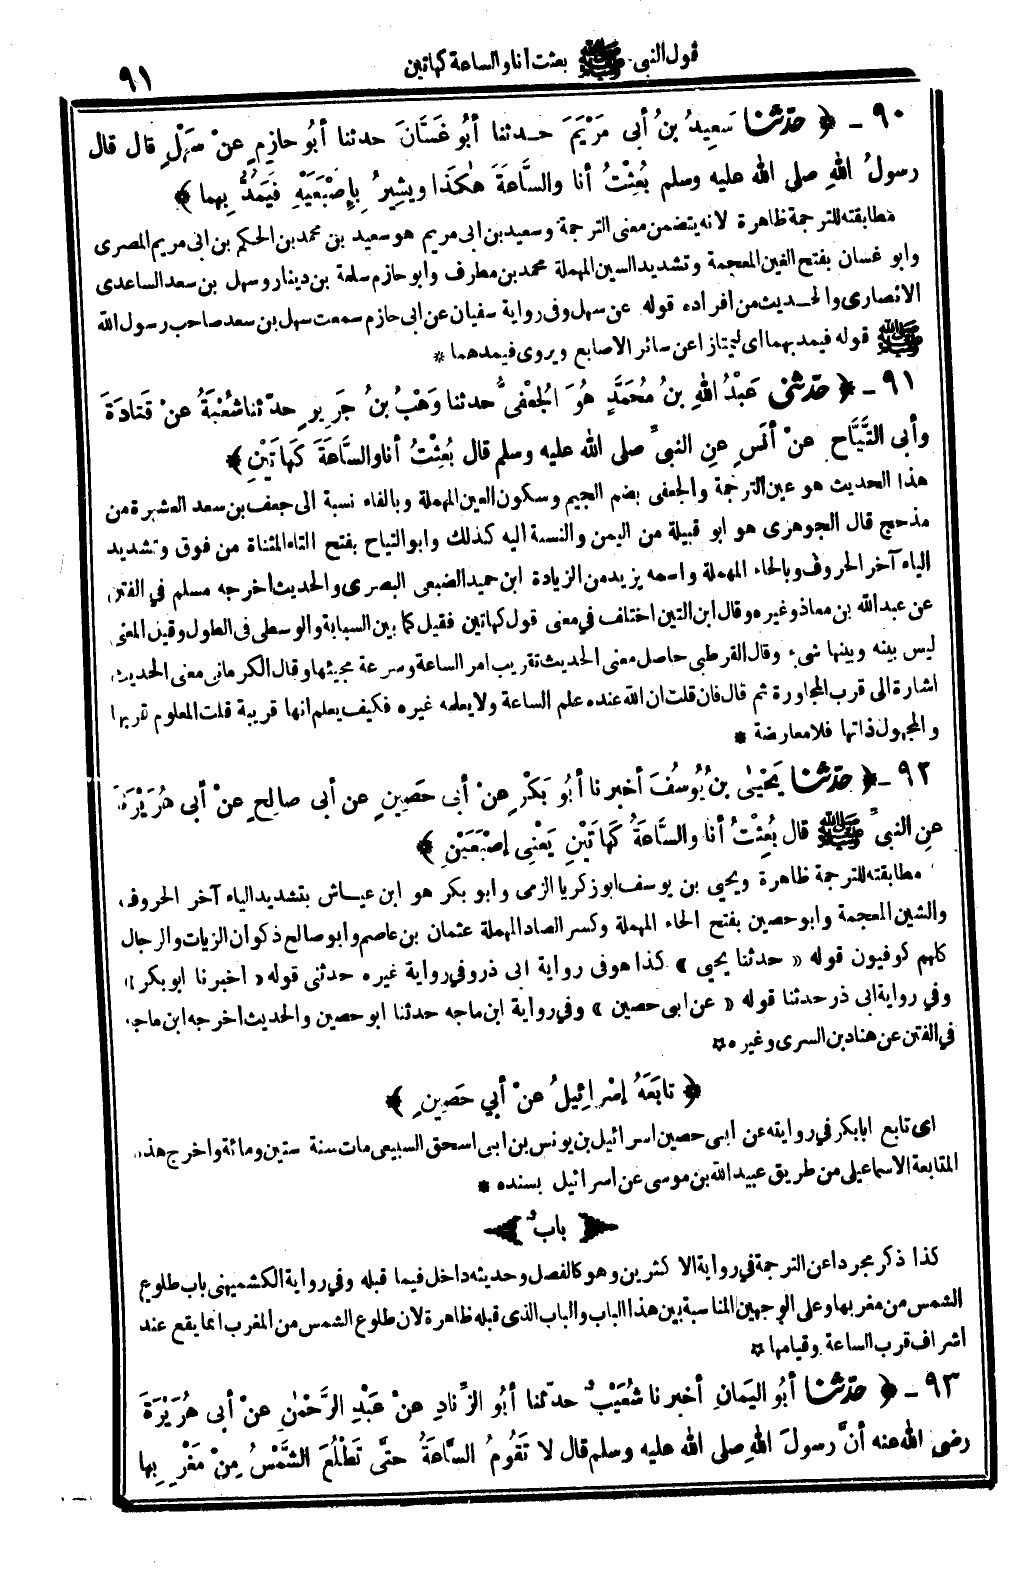 قول النبي ﷺ بعثت أنا والساعة كهاتين
٩١
٩٠ - ﴿ حَدَّثَنَا سَعِيدُ بنُ أبي مَرْيَمَ حدثنا أبُو غَسَّانَ حدثنا أبُو حازِمٍ عنْ سَهْلٍ قال قال
رسولُ اللهِ صلى الله عليه وسلم بُعِثْتُ أنا والسَّاعَةَ هكَذا ويشِيرُ بإِصْبَعَيْهِ فَيَمُدُّ بِهما ﴾
مطابقته للترجمة ظاهرة لانه يتضمن معنى الترجمة وسعيد بن ابى مريم هو سعيد بن محمد بن الحكم بن ابى مريم المصرى
وابو غسان بفتح الغين المعجمة وتشديد السين المهملة محمد بن مطرف وابو حازم سلمة بن دينار وسهل بن سعد الساعدى
الانصارى والحديث من افراده قوله عن سهل وفى رواية سفيان عن ابى حازم سمعت سهل بن سعد صاحب رسول الله
ﷺ قوله فيمد بهما اى ليمتازا عن سائر الاصابع ويروى فيمدهما *
٩١ - ﴿ حَدَّثَنِي عَبْدُ اللهِ بنُ مُحَمَّدٍ هُوَ الجُعْفِىُّ حدثنا وَهْبُ بنُ جَرِيرٍ حدّثنا شُعْبَةُ عنْ قَتادَةَ
وأبى التَّيَّاحِ عنْ أنَسٍ عنِ النبىِّ صلى الله عليه وسلم قال بُعِثْتُ أنا والسَّاعَةَ كَهاتَيْنِ ﴾
هذا الحديث هو عين الترجمة والجعفى بضم الجيم وسكون العين المهملة وبالفاء نسبة الى جعف بن سعد العشيرة من
مذحج قال الجوهرى هو ابو قبيلة من اليمن والنسبة اليه كذلك وابو التياح بفتح التاء المثناة من فوق وتشديد
الياء آخر الحروف وبالحاء المهملة واسمه يزيد من الزيادة ابن حميد الضبعى البصرى والحديث اخرجه مسلم في الفتن
عن عبد الله بن معاذ وغيره وقال ابن التين اختلف في معنى قول كهاتين فقيل كما بين السبابة والوسطى فى الطول وقيل المعنى
ليس بينه وبينها شىء وقال القرطبى حاصل معنى الحديث تقريب امر الساعة وسرعة مجيئها وقال الكرمانى معنى الحديث
اشارة الى قرب المجاورة ثم قال فان قلت ان الله عنده علم الساعة ولا يعلمه غيره فكيف يعلم انها قريبة قلت المعلوم قربها
والمجهول ذاتها فلا معارضة *
٩٢ - ﴿ حَدَّثَنَا يَحْيىٰ بنُ يُوسُفَ أخبرنا أبُو بَكْرٍ عنْ أبى حَصِينٍ عن أبى صالِحٍ عنْ أبى هُرَيْرَةَ
عنِ النبىِّ ﷺ قال بُعِثْتُ أنا والسَّاعَةُ كَهاتَيْنِ يَعْنِى إصْبَعَيْنِ ﴾
مطابقته للترجمة ظاهرة ويحيى بن يوسف ابو زكريا الزمى وابو بكر هو ابن عياش بتشديد الياء آخر الحروف
والشين المعجمة وابو حصين بفتح الحاء المهملة وكسر الصاد المهملة عثمان بن عاصم وابو صالح ذكوان الزيات والرجال
كلهم كوفيون قوله « حدثنا يحيى » كذا هو فى رواية ابى ذر وفي رواية غيره حدثنى قوله « اخبرنا ابو بكر »
وفي رواية ابى ذر حدثنا قوله « عن ابى حصين » وفي رواية ابن ماجه حدثنا ابو حصين والحديث اخرجه ابن ماجه
في الفتن عن هناد بن السرى وغيره *
﴿ تابَعَهُ إسْرائِيلُ عنْ أبي حَصِينٍ ﴾
اى تابع ابا بكر في روايته عن ابى حصين اسرائيل بن يونس بن ابى اسحق السبيعى مات سنة ستين ومائة واخرج هذه
المتابعة الاسماعيلى من طريق عبيد الله بن موسى عن اسرائيل بسنده *
﴿ بابٌ ﴾
كذا ذكر مجردا عن الترجمة في رواية الاكثرين وهو كالفصل وحديثه داخل فيما قبله وفي رواية الكشميهنى باب طلوع
الشمس من مغربها وعلى الوجهين المناسبة بين هذا الباب والباب الذى قبله ظاهرة لان طلوع الشمس من المغرب انما يقع عند
اشراف قرب الساعة وقيامها *
٩٣ - ﴿ حَدَّثَنَا أبُو اليَمانِ أخبرنا شُعَيْبٌ حدّثنا أبُو الزِّنادِ عنْ عَبْدِ الرَّحْمٰنِ عنْ أبى هُرَيْرَةَ
رضى الله عنه أنَّ رسولَ اللهِ صلى الله عليه وسلم قال لا تَقُومُ السَّاعَةُ حتَّى تَطْلُعَ الشَّمْسُ مِنْ مَغْرِبِها